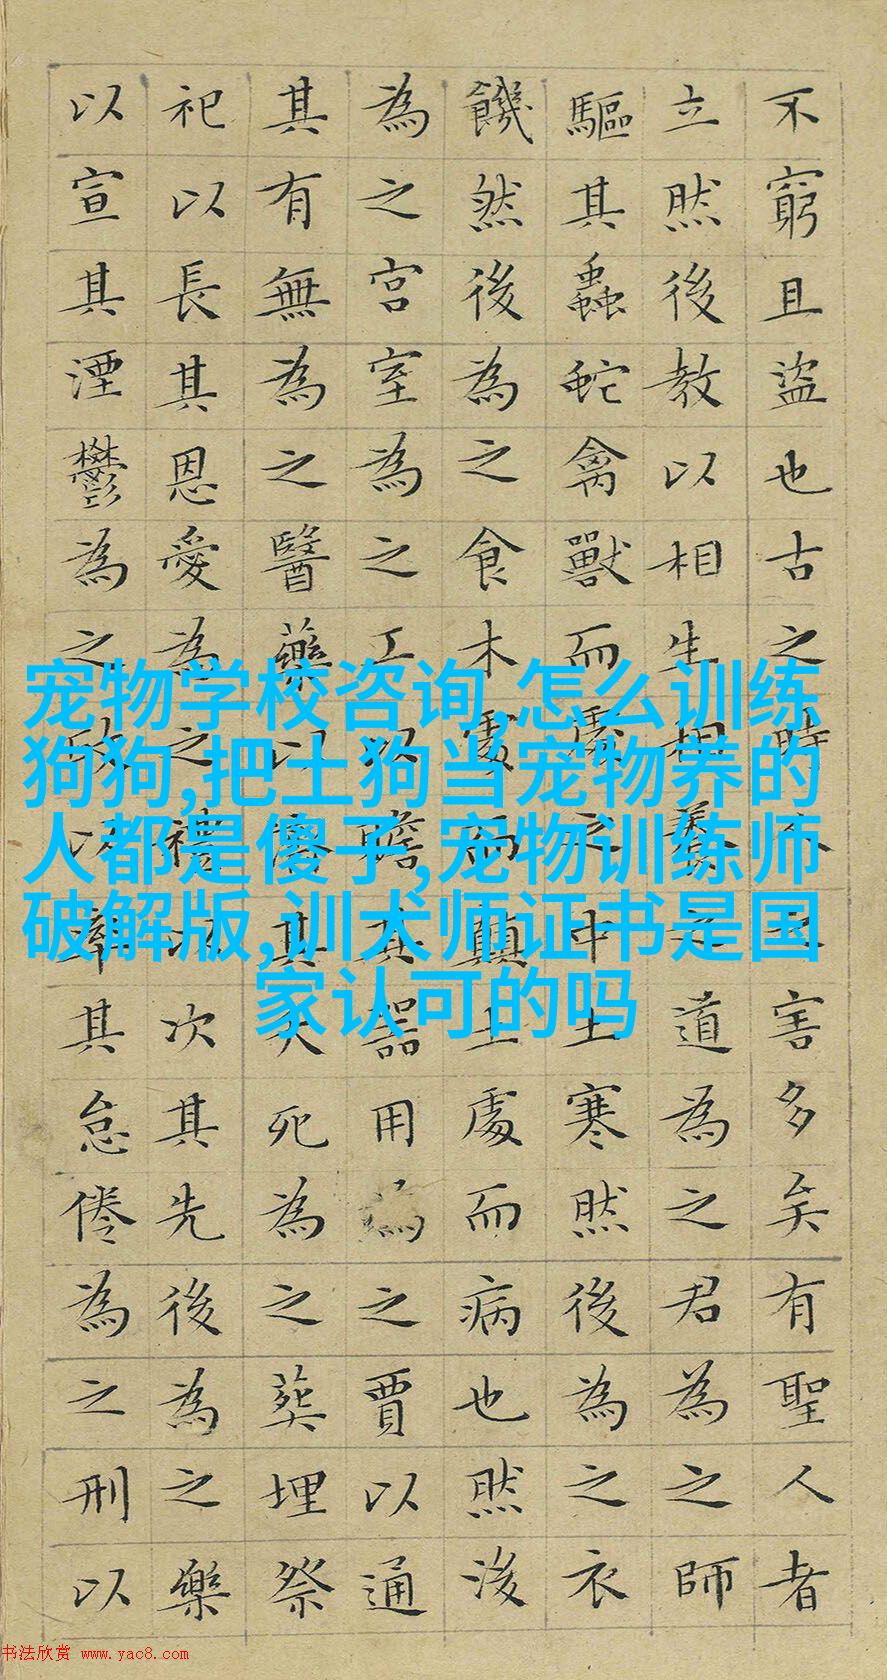 不窮且盜也古之時人之害多矣有聖人者
立然後教以相生相養之道為之君為之師
驅其蟲蛇禽獸而處之中土寒然後為之衣
饑然後為之食木處而顛土處而病也然後
為之宮室為之工以贍其器用為之賈以通
其有無為之醫藥以濟其夭死為之葬埋祭
祀以長其恩愛為之禮以次其先後為之樂
以宣其湮鬱為之政以率其怠倦為之刑以
宠物学校咨询,怎么训练
狗狗,把土狗当宠物养的
人都是傻子,宠物训练师
破解版,训犬师证书是国
家认可的吗
书法欣赏 www.yac8.com